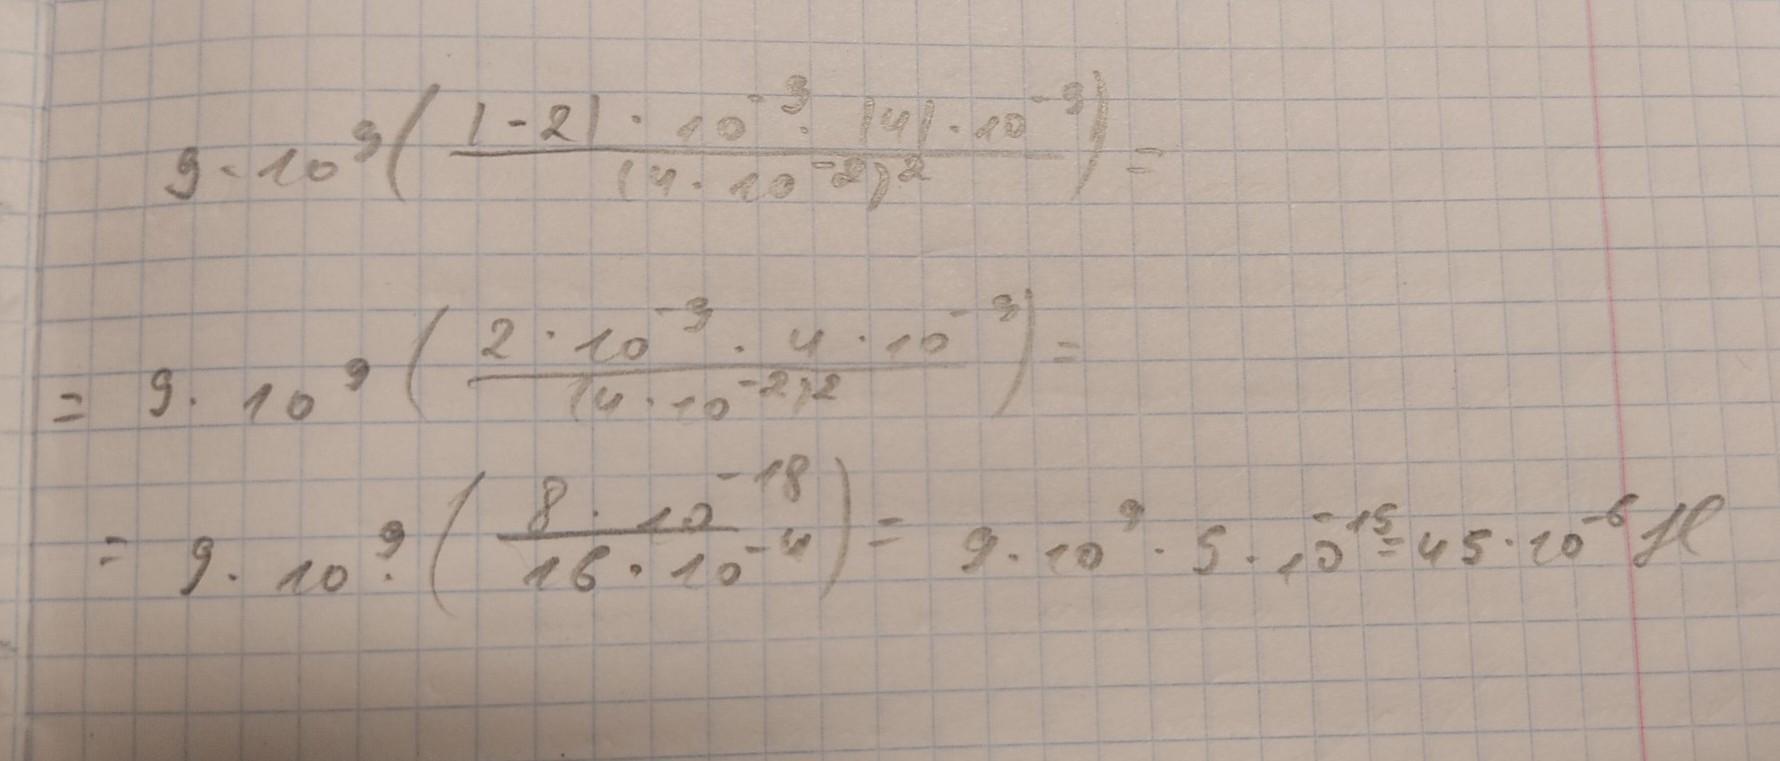 9·10⁹(|-2|·10⁻⁹·|4|·10⁻⁹/(4·10⁻²)²)=
=9·10⁹(2·10⁻⁹·4·10⁻⁹/(4·10⁻²)²)=
=9·10⁹·(8·10⁻¹⁸/16·10⁻⁴)=9·10⁹·5·10⁻¹⁵=45·10⁻⁶ Н